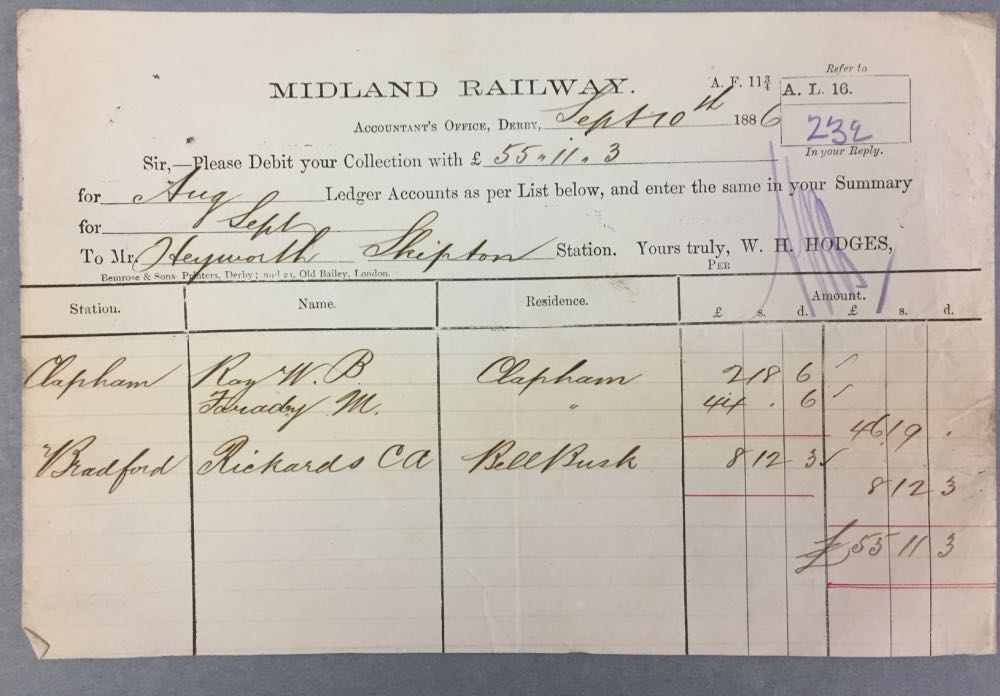 MIDLAND RAILWAY.
A. F. 11¾
Refer to
A. L. 16.
232
In your Reply.
ACCOUNTANT'S OFFICE, DERBY, Sept 10th 1886
Sir,—Please Debit your Collection with £ 55 " 11 . 3
for Aug Ledger Accounts as per List below, and enter the same in your Summary
for Sept
To Mr. Heyworth Skipton Station. Yours truly, W. H. HODGES,
PER
Bemrose & Sons Printers, Derby; and 23, Old Bailey, London.
Station. Name. Residence. Amount.
£ s. d. £ s. d.
Clapham Ray W. B. Clapham 2 18 6
Faraday M. " 44 . 6
46 19 .
Bradford Rickards C A Bell Busk 8 12 3
8 12 3
£ 55 11 3